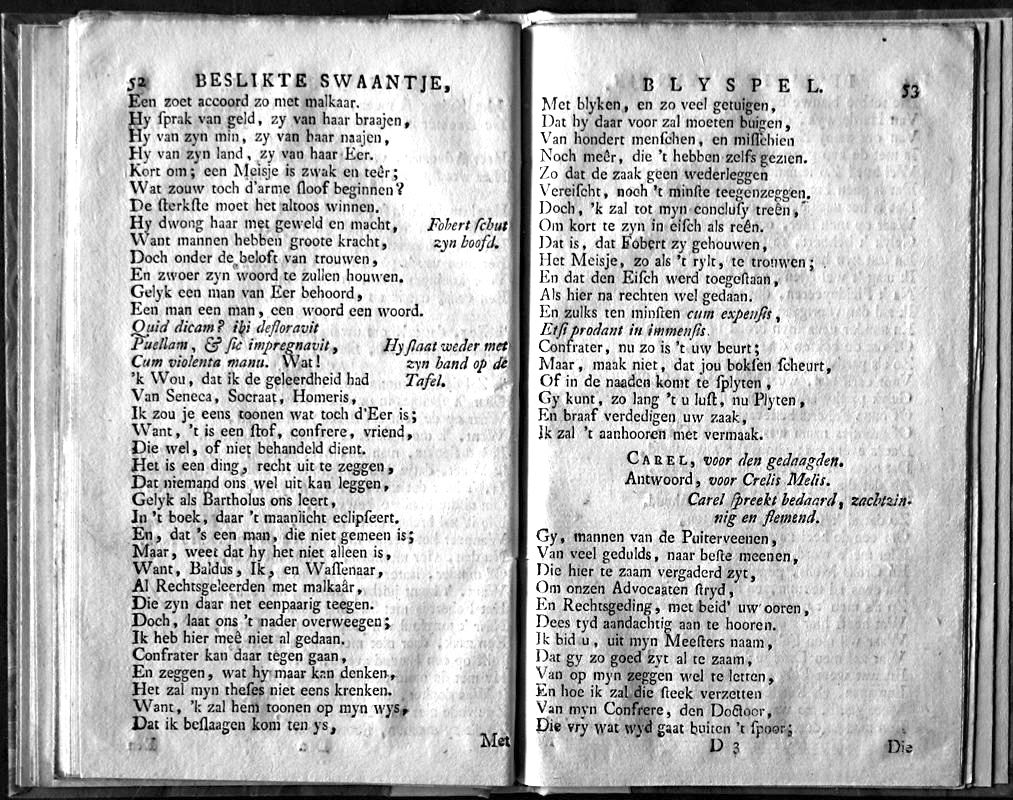 52 BESLIKTE SWAANTJE,
Een zoet accoord zo met malkaar.
Hy ſprak van geld, zy van haar braajen,
Hy van zyn min, zy van haar naajen,
Hy van zyn land, zy van haar Eer.
Kort om; een Meisje is zwak en teêr;
Wat zouw toch d'arme ſloof beginnen?
De ſterkſte moet het altoos winnen.
Hy dwong haar met geweld en macht, Fobert ſchut
Want mannen hebben groote kracht, zyn hoofd.
Doch onder de beloft van trouwen,
En zwoer zyn woord te zullen houwen.
Gelyk een man van Eer behoord,
Een man een man, een woord een woord.
Quid dicam? ibi defloravit
Puellam, & ſic impregnavit, Hy ſlaat weder met
Cum violenta manu. Wat! zyn hand op de
'k Wou, dat ik de geleerdheid had Tafel.
Van Seneca, Socraat, Homeris,
Ik zou je eens toonen wat toch d'Eer is;
Want, 't is een ſtof, confrere, vriend,
Die wel, of niet behandeld dient.
Het is een ding, recht uit te zeggen,
Dat niemand ons wel uit kan leggen,
Gelyk als Bartholus ons leert,
In 't boek, daar 't maanlicht eclipſeert.
En, dat 's een man, die niet gemeen is;
Maar, weet dat hy het niet alleen is,
Want, Baldus, Ik, en Waſſenaar,
Al Rechtsgeleerden met malkaâr,
Die zyn daar net eenpaarig teegen.
Doch, laat ons 't nader overweegen;
Ik heb hier meê niet al gedaan.
Confrater kan daar tegen gaan,
En zeggen, wat hy maar kan denken,
Het zal myn theſes niet eens krenken.
Want, 'k zal hem toonen op myn wys,
Dat ik beſlaagen kom ten ys,
Met
BLYSPEL. 53
Met blyken, en zo veel getuigen,
Dat hy daar voor zal moeten buigen,
Van hondert menſchen, en miſſchien
Noch meêr, die 't hebben zelfs gezien.
Zo dat de zaak geen wederleggen
Vereiſcht, noch 't minſte teegenzeggen.
Doch, 'k zal tot myn concluſy treên,
Om kort te zyn in eiſch als reên.
Dat is, dat Fobert zy gehouwen,
Het Meisje, zo als 't rylt, te trouwen;
En dat den Eiſch werd toegeſtaan,
Als hier na rechten wel gedaan.
En zulks ten minſten cum expenſis,
Etſi prodant in immenſis.
Confrater, nu zo is 't uw beurt;
Maar, maak niet, dat jou bokſen ſcheurt,
Of in de naaden komt te ſplyten,
Gy kunt, zo lang 't u luſt, nu Plyten,
En braaf verdedigen uw zaak,
Ik zal 't aanhooren met vermaak.
CAREL, voor den gedaagden.
Antwoord, voor Crelis Melis.
Carel ſpreekt bedaard, zachtzin-
nig en ſlemend.
Gy, mannen van de Puiterveenen,
Van veel gedulds, naar beſte meenen,
Die hier te zaam vergaderd zyt,
Om onzen Advocaaten ſtryd,
En Rechtsgeding, met beid' uw ooren,
Dees tyd aandachtig aan te hooren.
Ik bid u, uit myn Meeſters naam,
Dat gy zo goed zyt al te zaam,
Van op myn zeggen wel te letten,
En hoe ik zal die ſteek verzetten
Van myn Confrere, den Doctoor,
Die vry wat wyd gaat buiten 't ſpoor;
D 3 Die